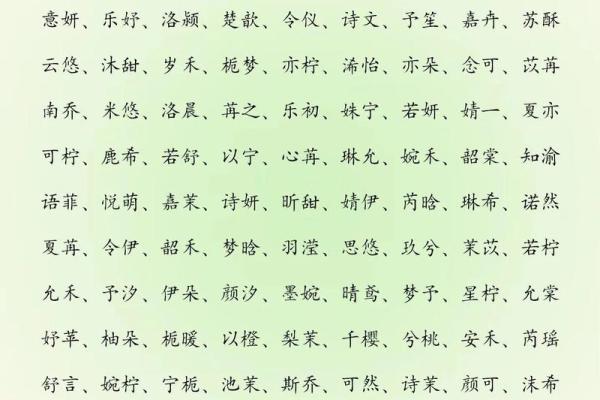 意妍、乐妤、洛颍、楚歆、令仪、诗文、予笙、嘉卉、苏酥
云悠、沐甜、岁禾、栀梦、亦柠、浠怡、亦朵、念可、苡苒
南乔、米悠、洛晨、苒之、乐初、姝宁、若妍、婧一、夏亦
可柠、鹿希、若舒、以宁、心苒、琳允、婉禾、韶棠、知渝
语菲、悦萌、嘉茉、诗妍、昕甜、婧伊、芮晗、琳希、诺然
夏苒、令伊、韶禾、梦晗、羽滢、思悠、玖兮、茉苡、若柠
允禾、予汐、伊朵、颜汐、墨婉、晴鸢、梦予、星柠、允棠
妤苹、柚朵、栀暖、以橙、梨茉、千樱、兮桃、安禾、芮瑶
舒言、婉柠、宁栀、池茉、斯乔、可然、诗茉、颜可、沫希